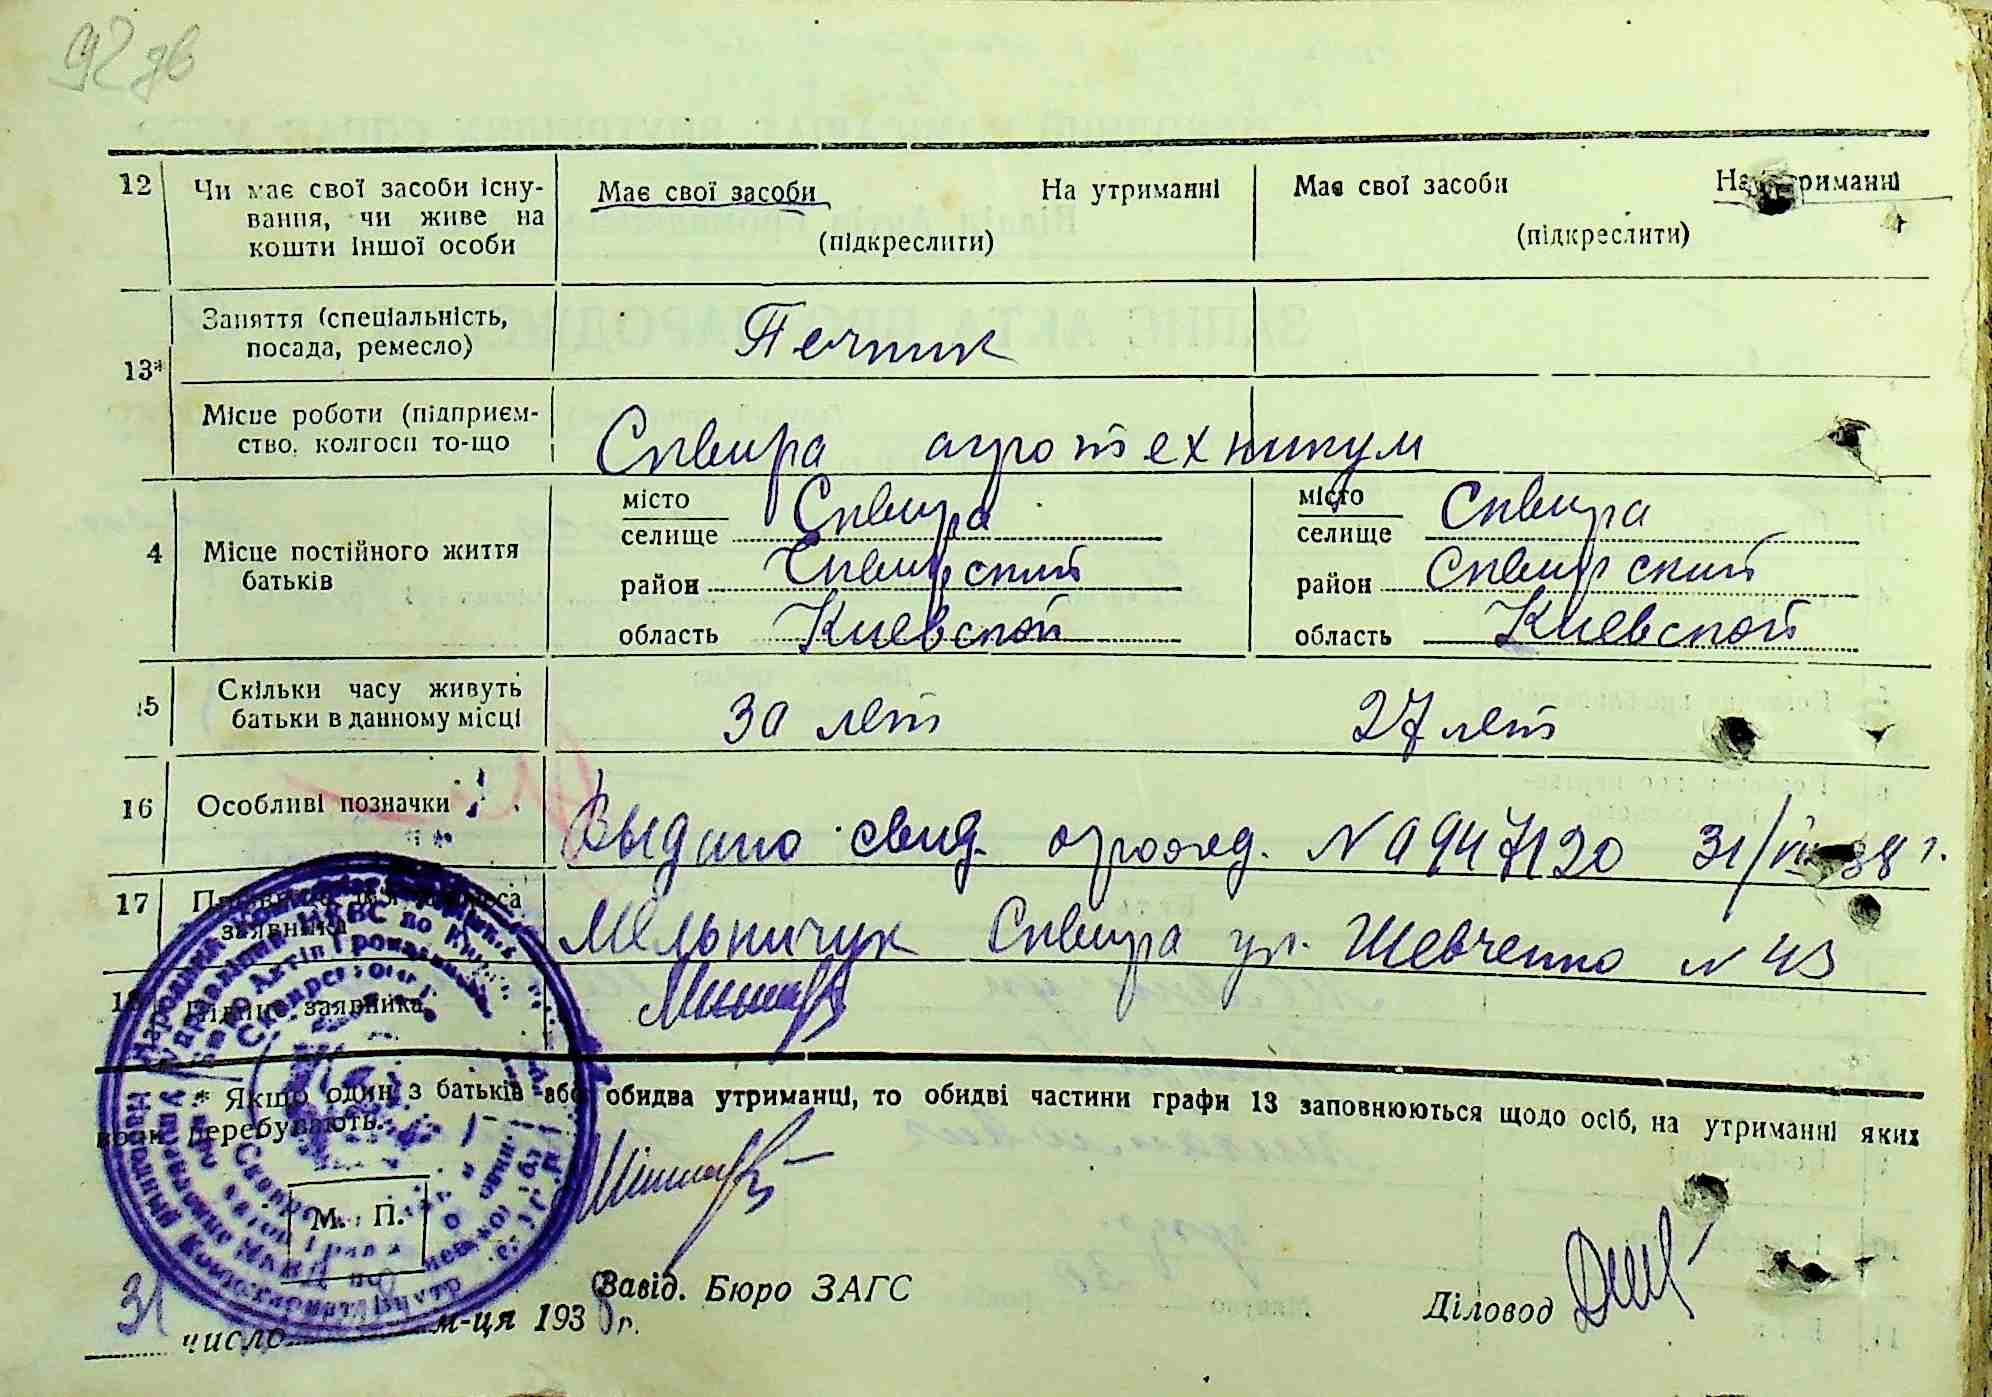 92 дв
12 Чи має свої засоби існу-
вання, чи живе на
кошти іншої особи
Має свої засоби На утриманні
(підкреслити)
Має свої засоби На утриманні
(підкреслити)
13*
Заняття (спеціальність,
посада, ремесло)
Печник
Місце роботи (підприєм-
ство, колгосп то-що
Сквира агротехникум
4 Місце постійного життя
батьків
місто
селище Сквира
район Сквирский
область Киевской
місто
селище Сквира
район Сквирский
область Киевской
5 Скільки часу живуть
батьки в данному місці
30 лет 27 лет
16 Особливі позначки
Выдано свид. о рожд. № 947120 31/ 38 г.
17
заявника
Мельничук Сквира ул. Шевченко № 43
заявника
* Якщо один з батьків або обидва утриманці, то обидві частини графи 13 заповнюються щодо осіб, на утриманні яких
вони перебувають.
М. П.
31 число м-ця 1938 р.
Завід. Бюро ЗАГС
Діловод